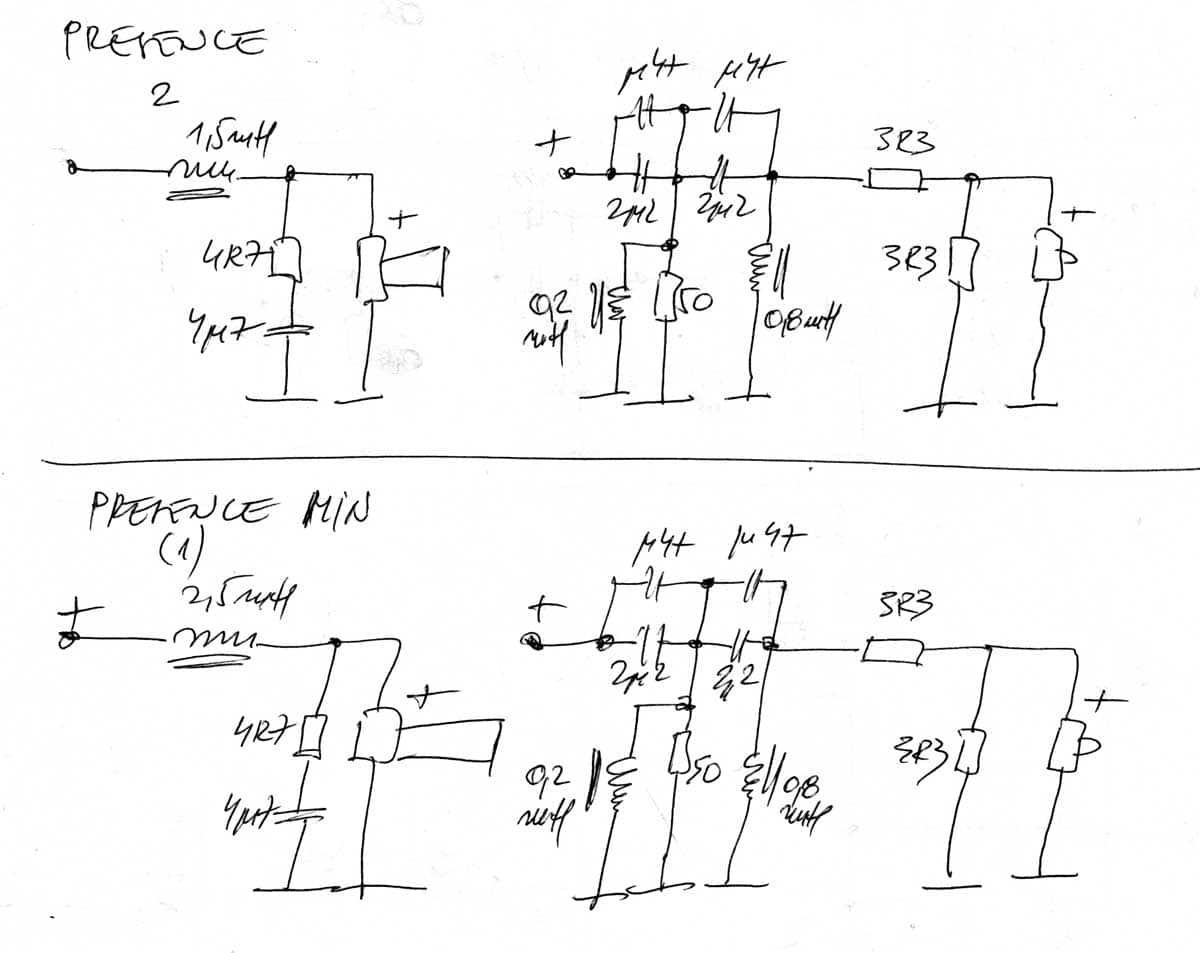 PRESENCE
2
1,5mH
4R7
4µ7
+
+
µ47
µ47
2µ2
2µ2
0,2
mH
50
0,8mH
3R3
3R3
+
PRESENCE MIN
(1)
+
2,5mH
4R7
4µ7
+
+
µ47
µ47
2µ2
2,2
0,2
mH
50
0,8
mH
3R3
3R3
+